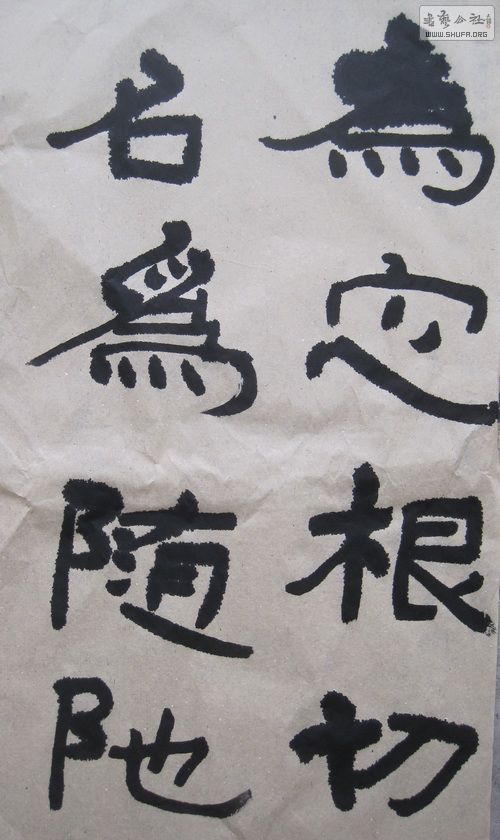 為根切
名爲隨阤
書藝公社
WWW.SHUFA.ORG